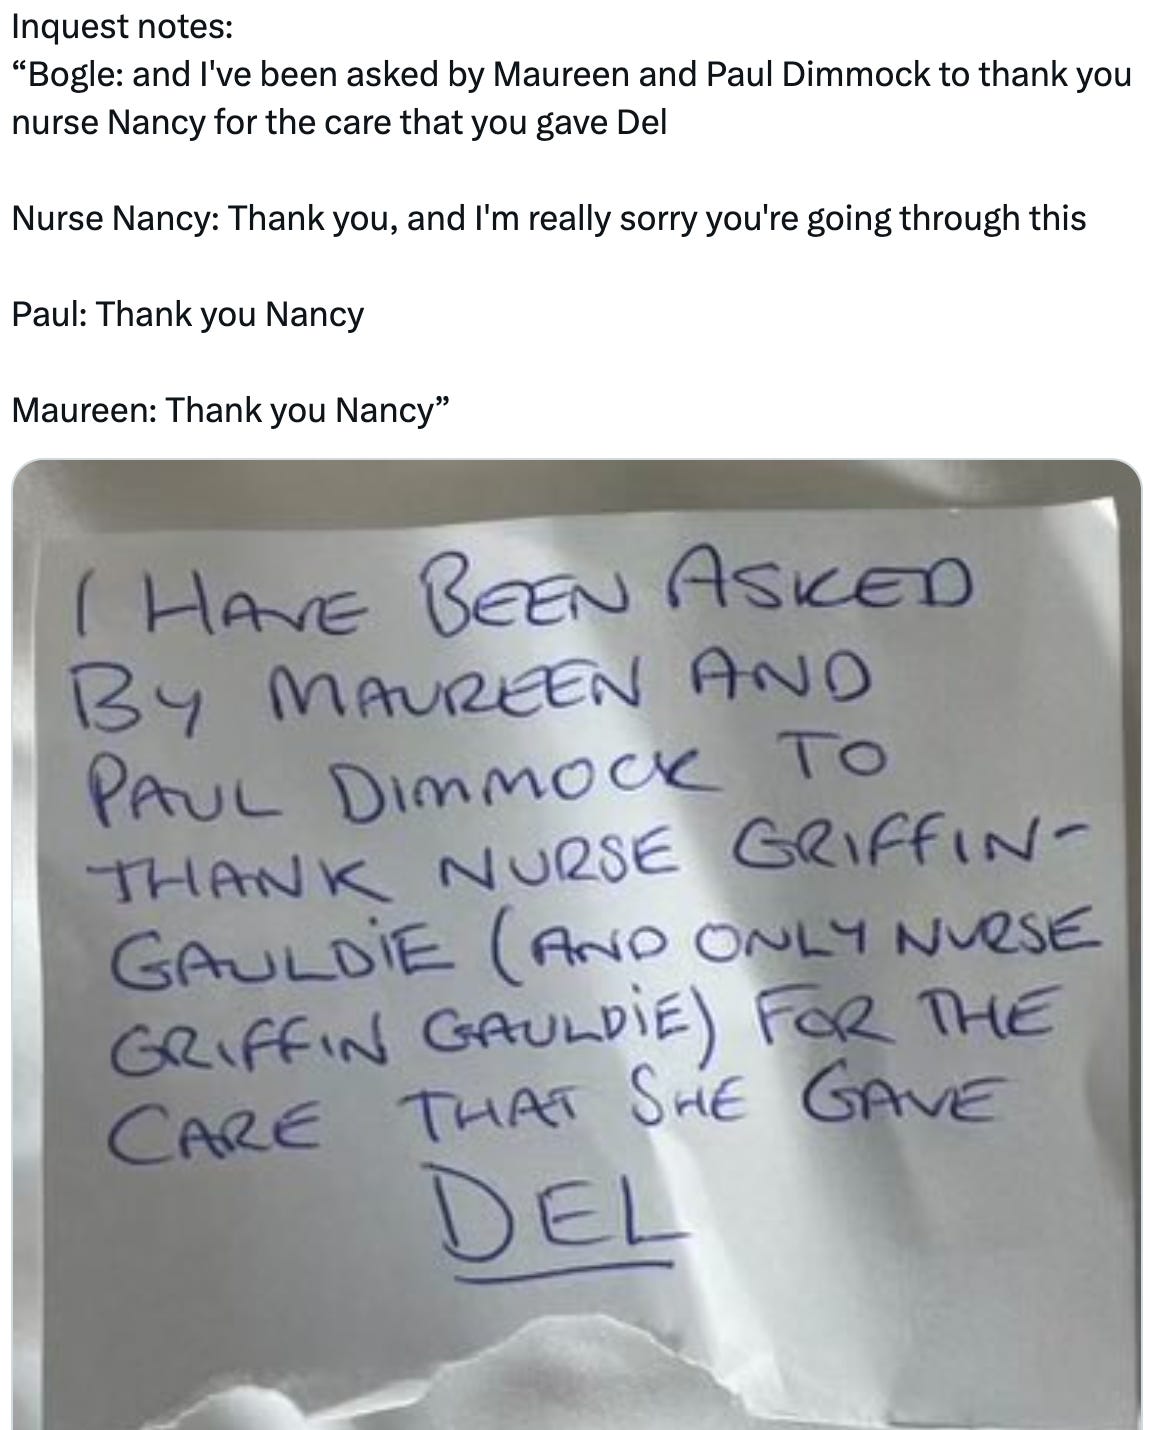 Inquest notes:
“Bogle: and I've been asked by Maureen and Paul Dimmock to thank you
nurse Nancy for the care that you gave Del
Nurse Nancy: Thank you, and I'm really sorry you're going through this
Paul: Thank you Nancy
Maureen: Thank you Nancy”
I HAVE BEEN ASKED
BY MAUREEN AND
PAUL DIMMOCK TO
THANK NURSE GRIFFIN-
GAULDIE (AND ONLY NURSE
GRIFFIN GAULDIE) FOR THE
CARE THAT SHE GAVE
DEL